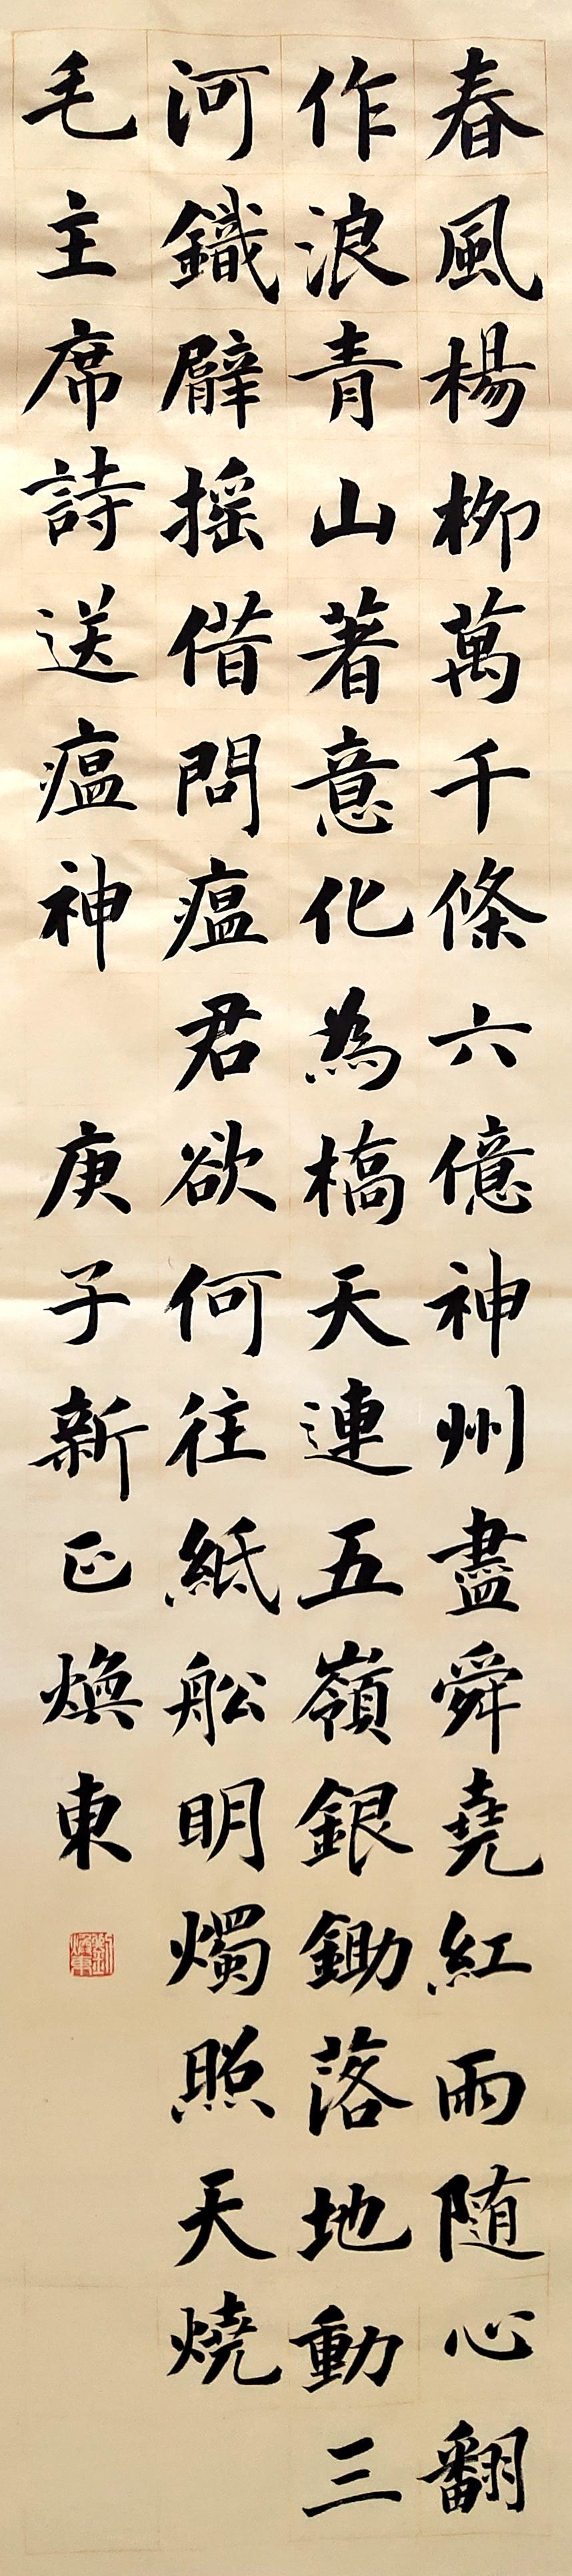 春風楊柳萬千條六億神州盡舜堯紅雨随心翻
作浪青山著意化為槗天連五嶺銀鋤落地動三
河鐵臂摇借問瘟君欲何往紙舩明燭照天燒
毛主席詩送瘟神 庚子新正煥東
劉煥東